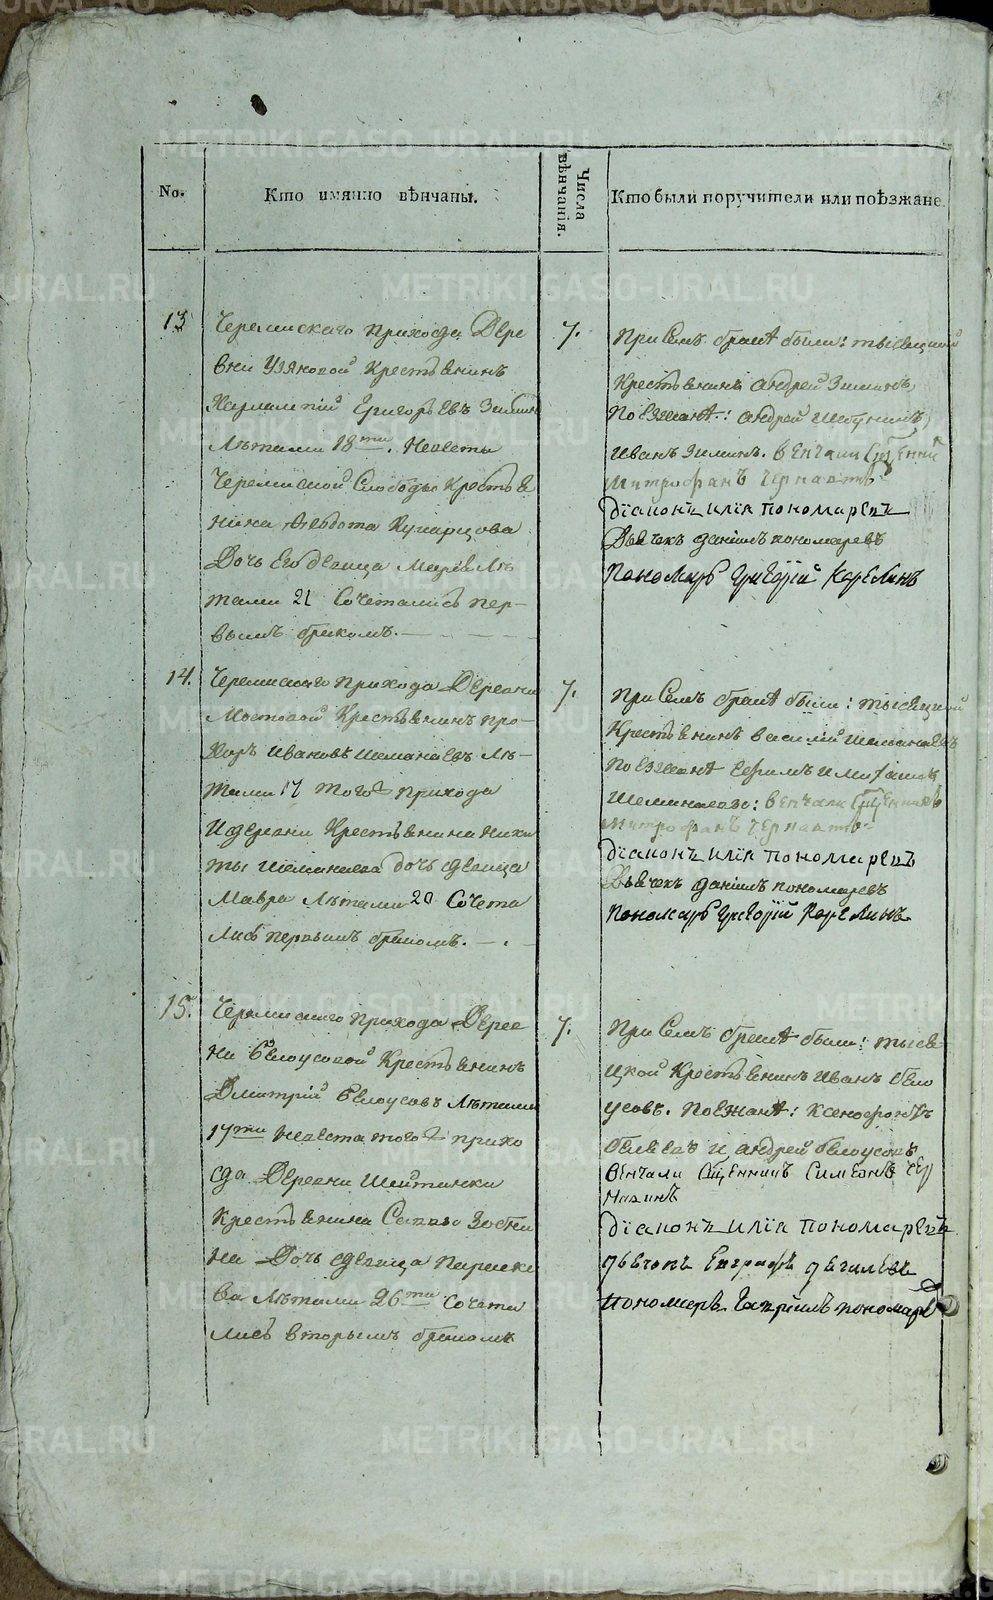 No.
Кто имянно вѣнчаны.
Числа
вѣнчанія.
Кто были поручители или поѣзжане.
13
Черемискаго прихода Дере
вни Узяновой Крестьянинъ
Харлампій Григорьевъ Зиминъ
Лѣтами 18ти. Невеста
Черемиской Слободы Крестья
нина Ѳедота Кучарцова
Дочь его девица Марѳа Лѣ
тами 21 Сочетались пер-
вымъ бракомъ.
7.
При Семъ бракѣ были: тысецкий
Крестьянинъ Андрей Зиминъ
Поезжанѣ: Андрей
Иванъ Зиминъ. венчали Священий
Митрофанъ Чернавинъ
Діаконъ Илія Пономаревъ
Дьячекъ Даніилъ Пономаревъ
Пономарь Григорій Карелинъ
14.
Черемискаго прихода Деревни
Мостовой Крестьянинъ про-
хоръ Ивановъ Шеманаевъ лѣ-
тами 17 того прихода
И деревни Крестьянина Ники
ты Шеманаева дочь девица
Мавра Лѣтами 20 Сочета
лись первымъ бракомъ.
7.
При Семъ бракѣ были: тысецкой
Крестьянинъ Василій Шеманаевъ
Поезжанѣ Ефимъ и
Шеманаевы: венчали Священникъ
Митрофанъ Чернавинъ
Діаконъ Илія Пономаревъ
Дьячекъ Даніилъ Пономаревъ
Пономарь Григорій Карелинъ
15.
Черемискаго прихода Дерев
ни Белоусовой Крестьянинъ
Дмитрій Белоусовъ Лѣтами
17ти Невеста того прихо
да Деревни Шайтанки
Крестьянина Савы
на Дочь девица Параске
ва Лѣтами 26ти Сочета
лись вторымъ бракомъ
7.
При Семъ бракѣ были: тысе
цкой Крестьянинъ Иванъ Бело
усовъ. Поежанѣ: Ксенофонтъ
и Андрей Белоусовъ
Венчали Священникъ Симеонъ Чер
навинъ
Діаконъ Илія Пономаревъ
Дьечокъ Евграфъ Дегилевъ
Пономарь Гавріилъ Пономаре
METRIKI.GASO-URAL.RU